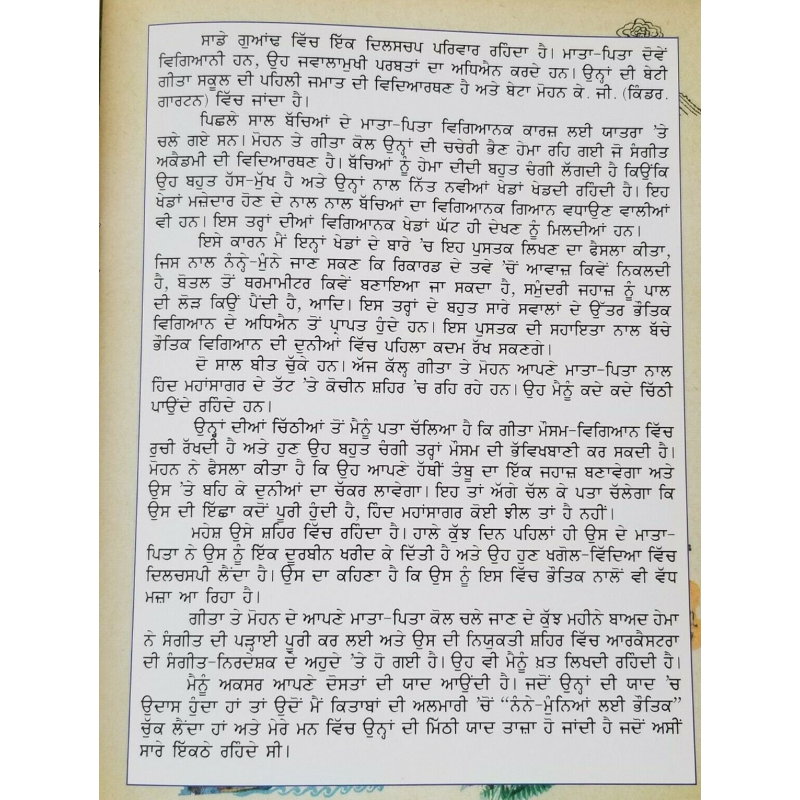 ਸਾਡੇ ਗੁਆਂਢ ਵਿੱਚ ਇੱਕ ਦਿਲਸਚਪ ਪਰਿਵਾਰ ਰਹਿੰਦਾ ਹੈ। ਮਾਤਾ-ਪਿਤਾ ਦੋਵੇਂ
ਵਿਗਿਆਨੀ ਹਨ, ਉਹ ਜਵਾਲਾਮੁਖੀ ਪਰਬਤਾਂ ਦਾ ਅਧਿਐਨ ਕਰਦੇ ਹਨ। ਉਨ੍ਹਾਂ ਦੀ ਬੇਟੀ
ਗੀਤਾ ਸਕੂਲ ਦੀ ਪਹਿਲੀ ਜਮਾਤ ਦੀ ਵਿਦਿਆਰਥਣ ਹੈ ਅਤੇ ਬੇਟਾ ਮੋਹਨ ਕੇ. ਜੀ. (ਕਿੰਡਰ.
ਗਾਰਟਨ) ਵਿੱਚ ਜਾਂਦਾ ਹੈ।
ਪਿਛਲੇ ਸਾਲ ਬੱਚਿਆਂ ਦੇ ਮਾਤਾ-ਪਿਤਾ ਵਿਗਿਆਨਕ ਕਾਰਜ਼ ਲਈ ਯਾਤਰਾ 'ਤੇ
ਚਲੇ ਗਏ ਸਨ। ਮੋਹਨ ਤੇ ਗੀਤਾ ਕੋਲ ਉਨ੍ਹਾਂ ਦੀ ਚਚੇਰੀ ਭੈਣ ਹੇਮਾ ਰਹਿ ਗਈ ਜੋ ਸੰਗੀਤ
ਅਕੈਡਮੀ ਦੀ ਵਿਦਿਆਰਥਣ ਹੈ। ਬੱਚਿਆਂ ਨੂੰ ਹੇਮਾ ਦੀਦੀ ਬਹੁਤ ਚੰਗੀ ਲੱਗਦੀ ਹੈ ਕਿਉਂਕਿ
ਉਹ ਬਹੁਤ ਹੱਸ-ਮੁੱਖ ਹੈ ਅਤੇ ਉਨ੍ਹਾਂ ਨਾਲ ਨਿੱਤ ਨਵੀਆਂ ਖੇਡਾਂ ਖੇਡਦੀ ਰਹਿੰਦੀ ਹੈ। ਇਹ
ਖੇਡਾਂ ਮਜ਼ੇਦਾਰ ਹੋਣ ਦੇ ਨਾਲ ਨਾਲ ਬੱਚਿਆਂ ਦਾ ਵਿਗਿਆਨਕ ਗਿਆਨ ਵਧਾਉਣ ਵਾਲੀਆਂ
ਵੀ ਹਨ। ਇਸ ਤਰ੍ਹਾਂ ਦੀਆਂ ਵਿਗਿਆਨਕ ਖੇਡਾਂ ਘੱਟ ਹੀ ਦੇਖਣ ਨੂੰ ਮਿਲਦੀਆਂ ਹਨ।
ਇਸੇ ਕਾਰਨ ਮੈਂ ਇਨ੍ਹਾਂ ਖੇਡਾਂ ਦੇ ਬਾਰੇ 'ਚ ਇਹ ਪੁਸਤਕ ਲਿਖਣ ਦਾ ਫੈਸਲਾ ਕੀਤਾ,
ਜਿਸ ਨਾਲ ਨੰਨ੍ਹੇ-ਮੁੰਨੇ ਜਾਣ ਸਕਣ ਕਿ ਰਿਕਾਰਡ ਦੇ ਤਵੇ 'ਚੋਂ ਆਵਾਜ਼ ਕਿਵੇਂ ਨਿਕਲਦੀ
ਹੈ, ਬੋਤਲ ਤੋਂ ਥਰਮਾਮੀਟਰ ਕਿਵੇਂ ਬਣਾਇਆ ਜਾ ਸਕਦਾ ਹੈ, ਸਮੁੰਦਰੀ ਜਹਾਜ਼ ਨੂੰ ਪਾਲ
ਦੀ ਲੋੜ ਕਿਉਂ ਪੈਂਦੀ ਹੈ, ਆਦਿ। ਇਸ ਤਰ੍ਹਾਂ ਦੇ ਬਹੁਤ ਸਾਰੇ ਸਵਾਲਾਂ ਦੇ ਉੱਤਰ ਭੌਤਿਕ
ਵਿਗਿਆਨ ਦੇ ਅਧਿਐਨ ਤੋਂ ਪ੍ਰਾਪਤ ਹੁੰਦੇ ਹਨ। ਇਸ ਪੁਸਤਕ ਦੀ ਸਹਾਇਤਾ ਨਾਲ ਬੱਚੇ
ਭੌਤਿਕ ਵਿਗਿਆਨ ਦੀ ਦੁਨੀਆਂ ਵਿੱਚ ਪਹਿਲਾ ਕਦਮ ਰੱਖ ਸਕਣਗੇ।
ਦੋ ਸਾਲ ਬੀਤ ਚੁੱਕੇ ਹਨ। ਅੱਜ ਕੱਲ੍ਹ ਗੀਤਾ ਤੇ ਮੋਹਨ ਆਪਣੇ ਮਾਤਾ-ਪਿਤਾ ਨਾਲ
ਹਿੰਦ ਮਹਾਂਸਾਗਰ ਦੇ ਤੱਟ 'ਤੇ ਕੋਚੀਨ ਸ਼ਹਿਰ 'ਚ ਰਹਿ ਰਹੇ ਹਨ। ਉਹ ਮੈਨੂੰ ਕਦੇ ਕਦੇ ਚਿੱਠੀ
ਪਾਉਂਦੇ ਰਹਿੰਦੇ ਹਨ।
ਉਨ੍ਹਾਂ ਦੀਆਂ ਚਿੱਠੀਆਂ ਤੋਂ ਮੈਨੂੰ ਪਤਾ ਚੱਲਿਆ ਹੈ ਕਿ ਗੀਤਾ ਮੌਸਮ-ਵਿਗਿਆਨ ਵਿੱਚ
ਰੁਚੀ ਰੱਖਦੀ ਹੈ ਅਤੇ ਹੁਣ ਉਹ ਬਹੁਤ ਚੰਗੀ ਤਰ੍ਹਾਂ ਮੌਸਮ ਦੀ ਭੱਵਿਖਬਾਣੀ ਕਰ ਸਕਦੀ ਹੈ।
ਮੋਹਨ ਨੇ ਫੈਸਲਾ ਕੀਤਾ ਹੈ ਕਿ ਉਹ ਆਪਣੇ ਹੱਥੀਂ ਤੰਬੂ ਦਾ ਇੱਕ ਜਹਾਜ਼ ਬਣਾਵੇਗਾ ਅਤੇ
ਉਸ 'ਤੇ ਬਹਿ ਕੇ ਦੁਨੀਆਂ ਦਾ ਚੱਕਰ ਲਾਵੇਗਾ। ਇਹ ਤਾਂ ਅੱਗੇ ਚੱਲ ਕੇ ਪਤਾ ਚੱਲੇਗਾ ਕਿ
ਉਸ ਦੀ ਇੱਛਾ ਕਦੋਂ ਪੂਰੀ ਹੁੰਦੀ ਹੈ, ਹਿੰਦ ਮਹਾਂਸਾਗਰ ਕੋਈ ਝੀਲ ਤਾਂ ਹੈ ਨਹੀਂ।
ਮਹੇਸ਼ ਉਸੇ ਸ਼ਹਿਰ ਵਿੱਚ ਰਹਿੰਦਾ ਹੈ। ਹਾਲੇ ਕੁੱਝ ਦਿਨ ਪਹਿਲਾਂ ਹੀ ਉਸ ਦੇ ਮਾਤਾ-
ਪਿਤਾ ਨੇ ਉਸ ਨੂੰ ਇੱਕ ਦੂਰਬੀਨ ਖਰੀਦ ਕੇ ਦਿੱਤੀ ਹੈ ਅਤੇ ਉਹ ਹੁਣ ਖਗੋਲ-ਵਿੱਦਿਆ ਵਿੱਚ
ਦਿਲਚਸਪੀ ਲੈਂਦਾ ਹੈ। ਉਸ ਦਾ ਕਹਿਣਾ ਹੈ ਕਿ ਉਸ ਨੂੰ ਇਸ ਵਿੱਚ ਭੌਤਿਕ ਨਾਲੋਂ ਵੀ ਵੱਧ
ਮਜ਼ਾ ਆ ਰਿਹਾ ਹੈ।
ਗੀਤਾ ਤੇ ਮੋਹਨ ਦੇ ਆਪਣੇ ਮਾਤਾ-ਪਿਤਾ ਕੋਲ ਚਲੇ ਜਾਣ ਦੇ ਕੁੱਝ ਮਹੀਨੇ ਬਾਅਦ ਹੇਮਾ
ਨੇ ਸੰਗੀਤ ਦੀ ਪੜ੍ਹਾਈ ਪੂਰੀ ਕਰ ਲਈ ਅਤੇ ਉਸ ਦੀ ਨਿਯੁਕਤੀ ਸ਼ਹਿਰ ਵਿੱਚ ਆਰਕੈਸਟਰਾ
ਦੀ ਸੰਗੀਤ-ਨਿਰਦੇਸ਼ਕ ਦੇ ਅਹੁਦੇ 'ਤੇ ਹੋ ਗਈ ਹੈ। ਉਹ ਵੀ ਮੈਨੂੰ ਖ਼ਤ ਲਿਖਦੀ ਰਹਿੰਦੀ ਹੈ।
ਮੈਨੂੰ ਅਕਸਰ ਆਪਣੇ ਦੋਸਤਾਂ ਦੀ ਯਾਦ ਆਉਂਦੀ ਹੈ। ਜਦੋਂ ਉਨ੍ਹਾਂ ਦੀ ਯਾਦ 'ਚ
ਉਦਾਸ ਹੁੰਦਾ ਹਾਂ ਤਾਂ ਉਦੋਂ ਮੈਂ ਕਿਤਾਬਾਂ ਦੀ ਅਲਮਾਰੀ 'ਚੋਂ "ਨੰਨੇ-ਮੁੰਨਿਆਂ ਲਈ ਭੌਤਿਕ"
ਚੁੱਕ ਲੈਂਦਾ ਹਾਂ ਅਤੇ ਮੇਰੇ ਮਨ ਵਿੱਚ ਉਨ੍ਹਾਂ ਦੀ ਮਿੱਠੀ ਯਾਦ ਤਾਜ਼ਾ ਹੋ ਜਾਂਦੀ ਹੈ ਜਦੋਂ ਅਸੀਂ
ਸਾਰੇ ਇੱਕਠੇ ਰਹਿੰਦੇ ਸੀ।